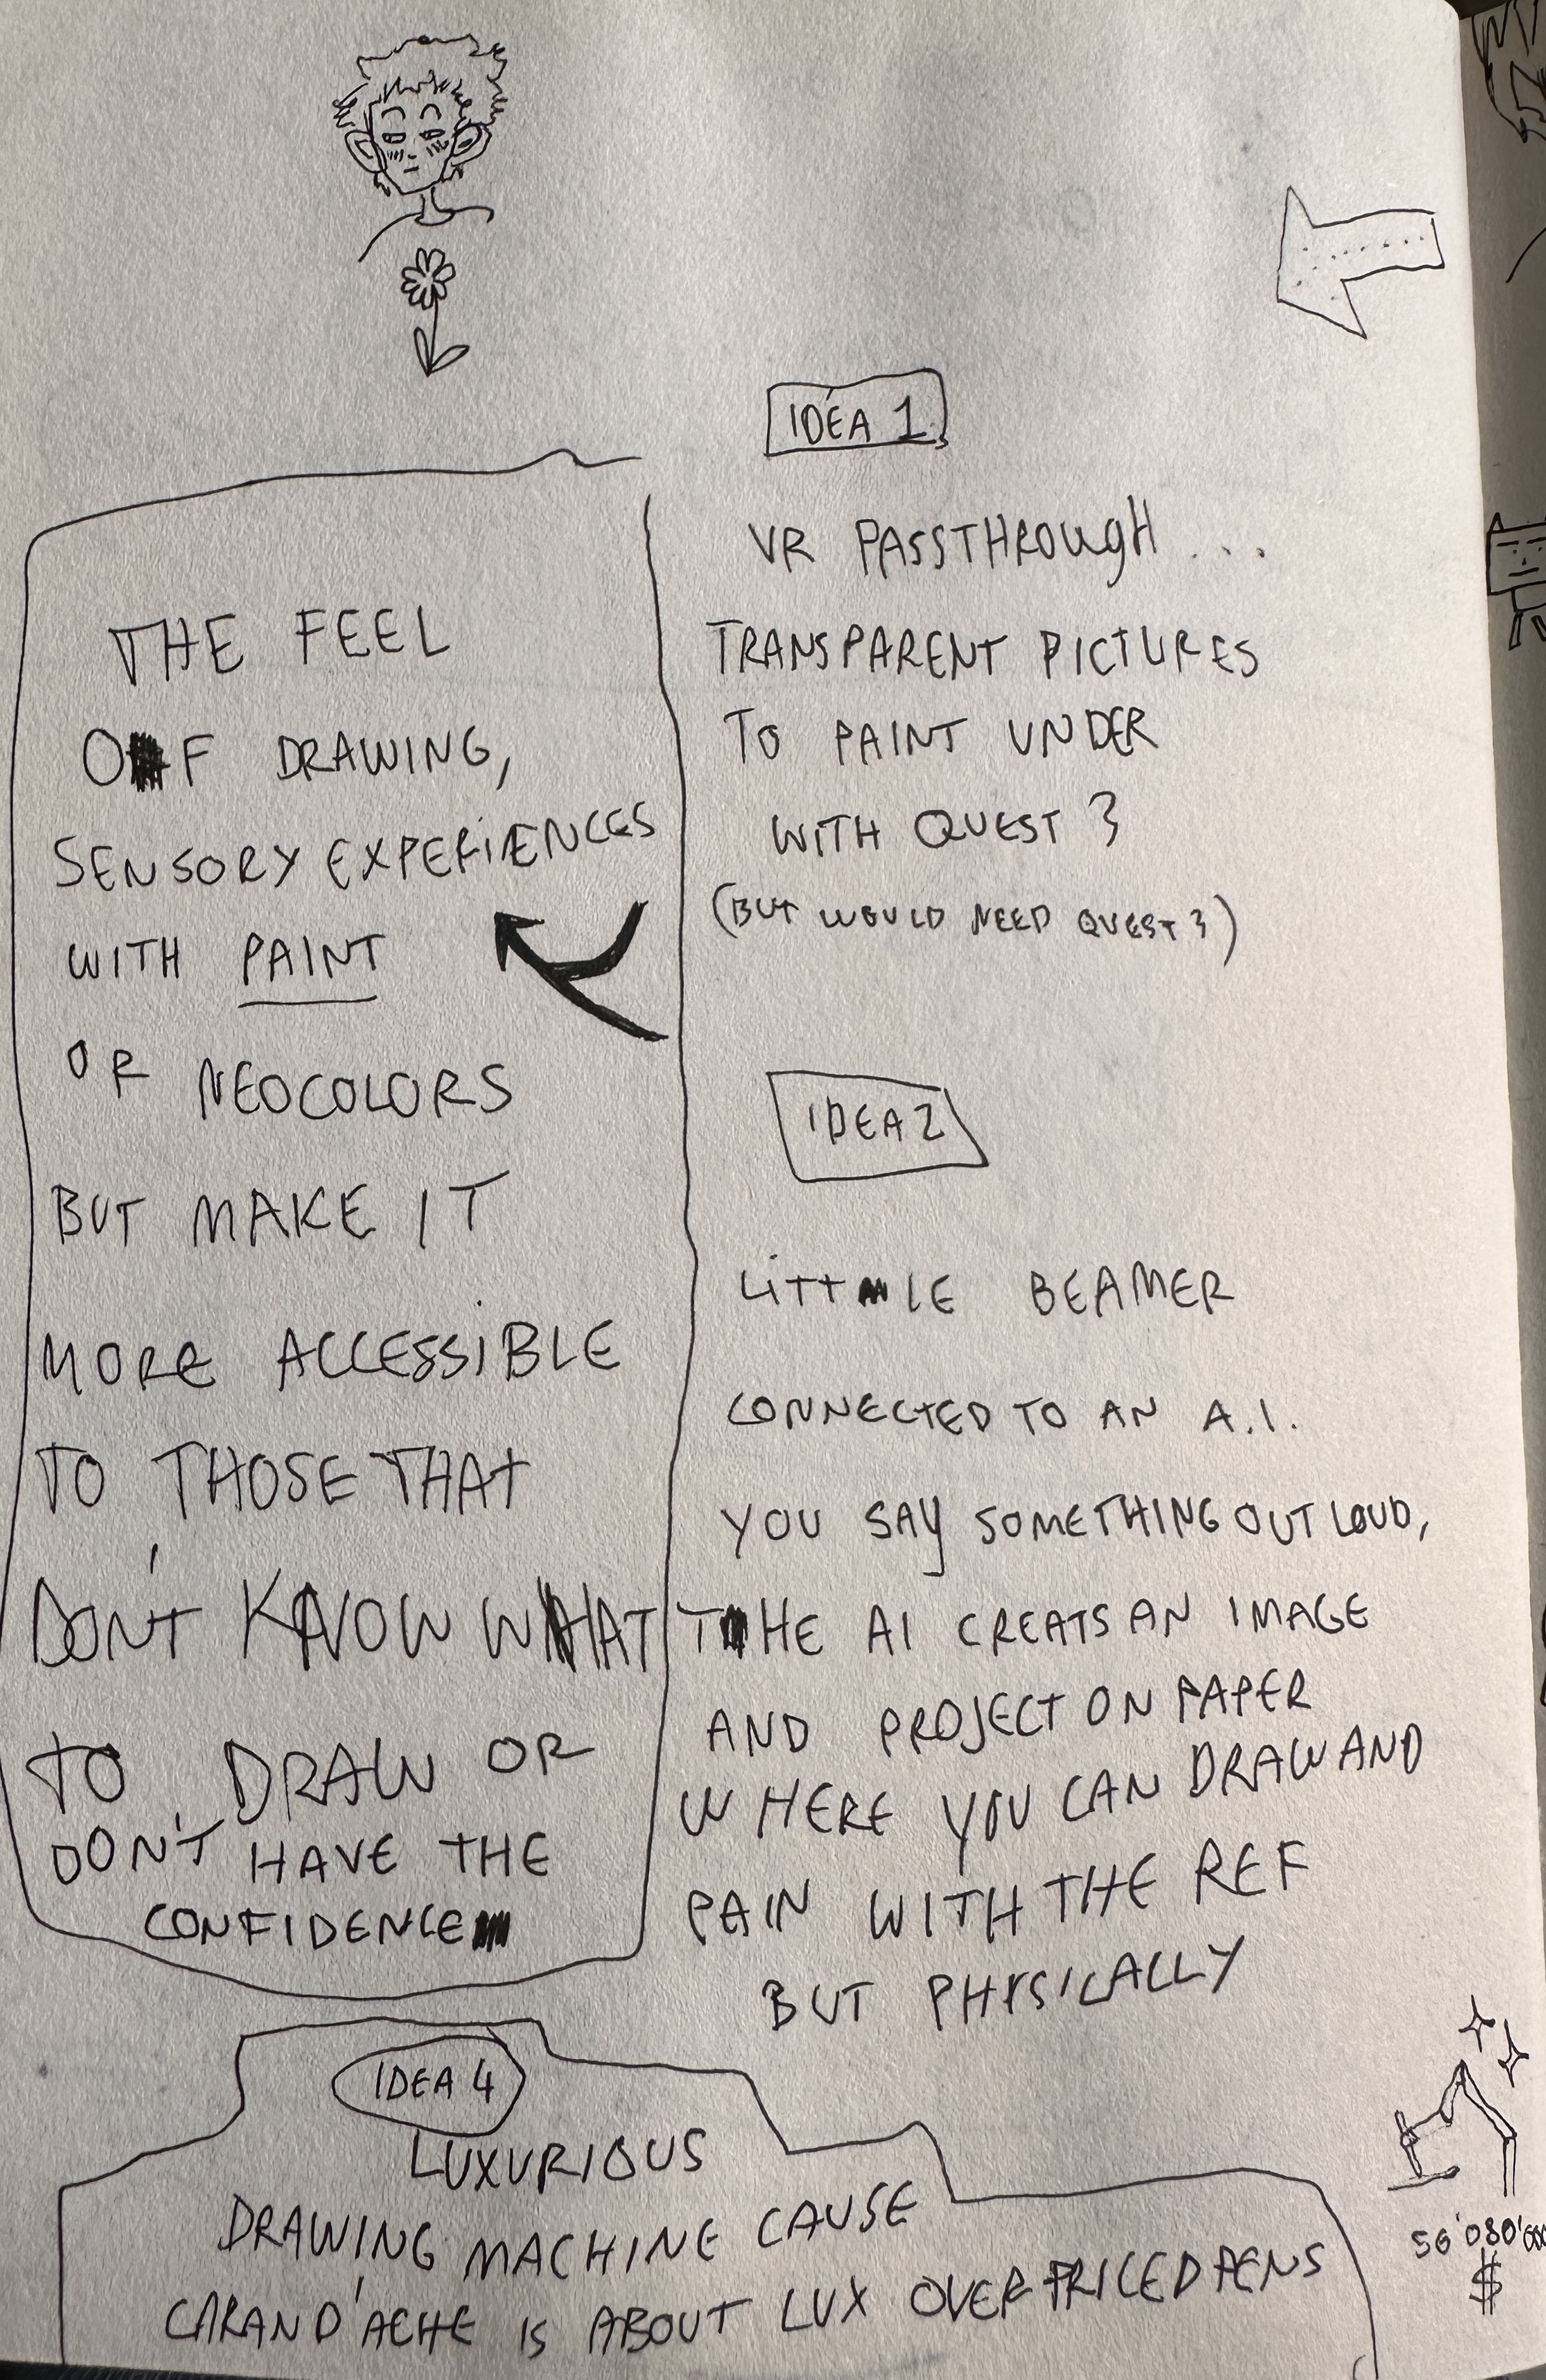 THE FEEL
OF DRAWING,
SENSORY EXPERIENCES
WITH PAINT
OR NEOCOLORS
BUT MAKE IT
MORE ACCESSIBLE
TO THOSE THAT
DON'T KNOW WHAT
TO DRAW OR
DON'T HAVE THE
CONFIDENCE
IDEA 1
VR PASSTHROUGH ...
TRANSPARENT PICTURES
TO PAINT UNDER
WITH QUEST 3
(BUT WOULD NEED QUEST 3)
IDEA 2
LITTLE BEAMER
CONNECTED TO AN A.I.
YOU SAY SOMETHING OUT LOUD,
THE AI CREATS AN IMAGE
AND PROJECT ON PAPER
WHERE YOU CAN DRAW AND
PAIN WITH THE REF
BUT PHYSICALLY
IDEA 4
LUXURIOUS
DRAWING MACHINE CAUSE
CARAN D'ACHE IS ABOUT LUX OVERPRICED PENS
$